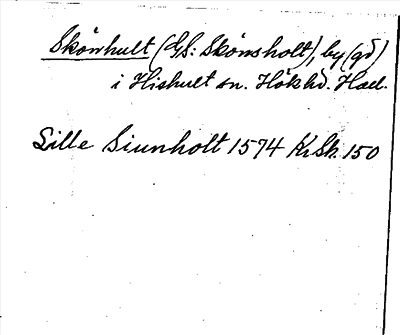 Skönhult (GS: Skönsholt), by (gd)
i Hishult sn. Hökhd. Hall.
Lille Siunholt 1574 KrSk. 150